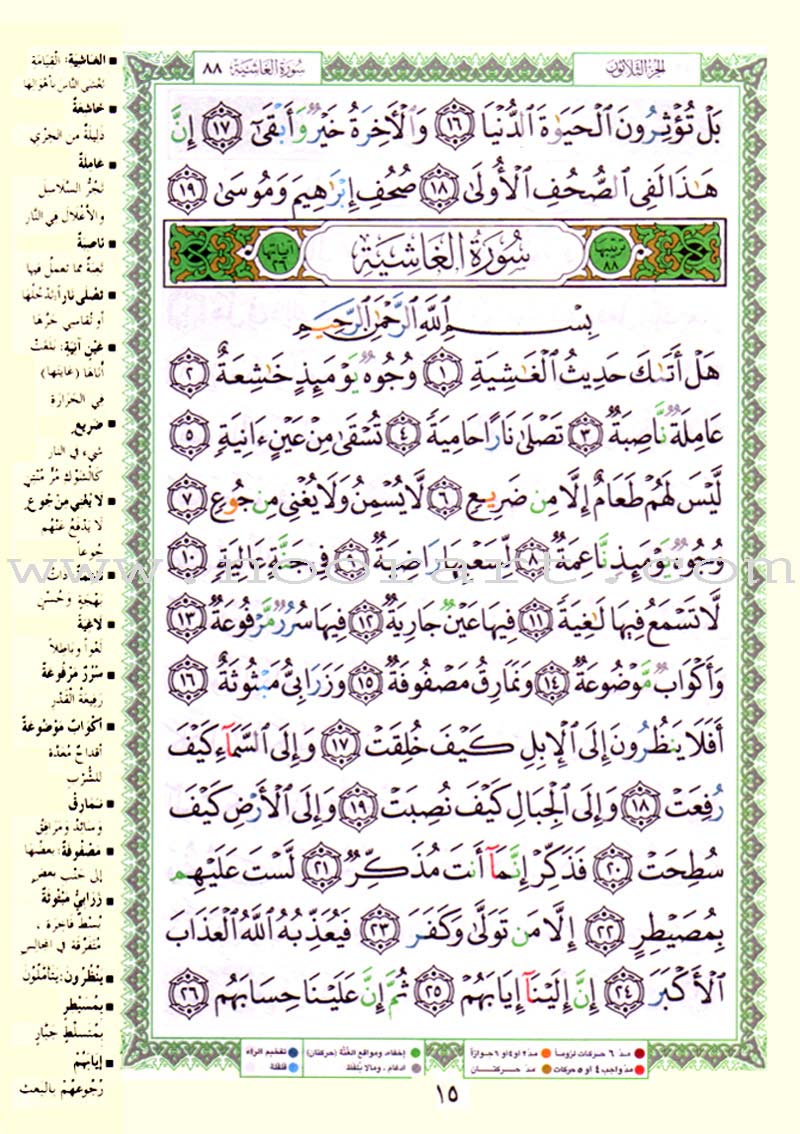 سُورَةُ الغَاشِيَة ٨٨
الجزء الثلاثون
بَلْ تُؤْثِرُونَ ٱلْحَيَوٰةَ ٱلدُّنْيَا ١٦ وَٱلْأَخِرَةُ خَيْرٌ وَأَبْقَىٰٓ ١٧ إِنَّ
هَـٰذَا لَفِى ٱلصُّحُفِ ٱلْأُولَىٰ ١٨ صُحُفِ إِبْرَٰهِيمَ وَمُوسَىٰ ١٩
ترتيبها ٨٨ سُورَةُ الغَاشِيَةِ آياتها ٢٦
بِسْمِ ٱللَّهِ ٱلرَّحْمَـٰنِ ٱلرَّحِيمِ
هَلْ أَتَىٰكَ حَدِيثُ ٱلْغَـٰشِيَةِ ١ وُجُوهٌ يَوْمَئِذٍ خَـٰشِعَةٌ ٢
عَامِلَةٌ نَّاصِبَةٌ ٣ تَصْلَىٰ نَارًا حَامِيَةً ٤ تُسْقَىٰ مِنْ عَيْنٍ ءَانِيَةٍ ٥
لَّيْسَ لَهُمْ طَعَامٌ إِلَّا مِن ضَرِيعٍ ٦ لَّا يُسْمِنُ وَلَا يُغْنِى مِن جُوعٍ ٧
وُجُوهٌ يَوْمَئِذٍ نَّاعِمَةٌ ٨ لِّسَعْيِهَا رَاضِيَةٌ ٩ فِى جَنَّةٍ عَالِيَةٍ ١٠
لَّا تَسْمَعُ فِيهَا لَـٰغِيَةً ١١ فِيهَا عَيْنٌ جَارِيَةٌ ١٢ فِيهَا سُرُرٌ مَّرْفُوعَةٌ ١٣
وَأَكْوَابٌ مَّوْضُوعَةٌ ١٤ وَنَمَارِقُ مَصْفُوفَةٌ ١٥ وَزَرَابِىُّ مَبْثُوثَةٌ ١٦
أَفَلَا يَنظُرُونَ إِلَى ٱلْإِبِلِ كَيْفَ خُلِقَتْ ١٧ وَإِلَى ٱلسَّمَآءِ كَيْفَ
رُفِعَتْ ١٨ وَإِلَى ٱلْجِبَالِ كَيْفَ نُصِبَتْ ١٩ وَإِلَى ٱلْأَرْضِ كَيْفَ
سُطِحَتْ ٢٠ فَذَكِّرْ إِنَّمَآ أَنتَ مُذَكِّرٌ ٢١ لَّسْتَ عَلَيْهِم
بِمُصَيْطِرٍ ٢٢ إِلَّا مَن تَوَلَّىٰ وَكَفَرَ ٢٣ فَيُعَذِّبُهُ ٱللَّهُ ٱلْعَذَابَ
ٱلْأَكْبَرَ ٢٤ إِنَّ إِلَيْنَآ إِيَابَهُمْ ٢٥ ثُمَّ إِنَّ عَلَيْنَا حِسَابَهُم ٢٦
الغاشية: القيامة
تغشى الناس بأهوالها
خاشعة
ذليلة من الخزي
عاملة
تجر السلاسل
والأغلال في النار
ناصبة
تعبة مما تعمل فيها
تصلى نارا: تدخلها
أو تقاسي حرها
عين آنية: بلغت
أناها (غايتها)
في الحرارة
ضريع
شيء في النار
كالشوك مر منتن
لا يغني من جوع
لا يدفع عنهم
جوعا
ناعمة: ذات
بهجة وحسن
لاغية
لغوا وباطلا
سرر مرفوعة
رفيعة القدر
أكواب موضوعة
أقداح معدة
للشرب
نمارق
وسائد ومرافق
مصفوفة: بعضها
إلى جنب بعض
زرابي مبثوثة
بسط فاخرة،
متفرقة في المجالس
ينظرون: يتأملون
بمسيطر
بمتسلط جبار
إيابهم
رجوعهم بالبعث
www.noorart.com
مد ٦ حركات لزوما
مد ٢ أو ٤ أو ٦ جوازا
إخفاء، ومواقع الغنة (حركتان)
تفخيم الراء
مد واجب ٤ أو ٥ حركات
مد حركتان
ادغام، ومالا يلفظ
قلقلة
١٥